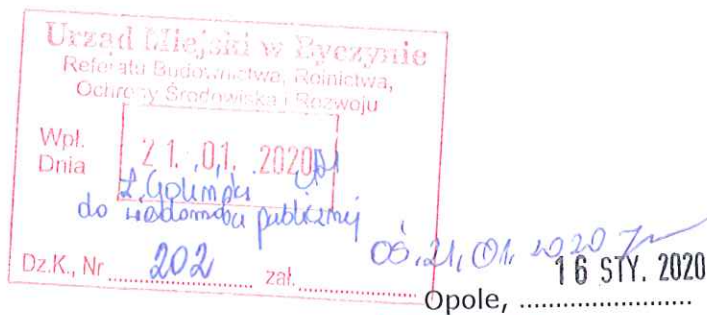 Urząd Miejski w Byczynie
Referatu Budownictwa, Rolnictwa,
Ochrony Środowiska i Rozwoju
Wpł.
Dnia 21. 01. 2020
do wiadomości publicznej
Dz.K., Nr ........ 202 ........ zał. ........................
OŚ, 21, 01, 2020
16 STY. 2020
Opole, ........................